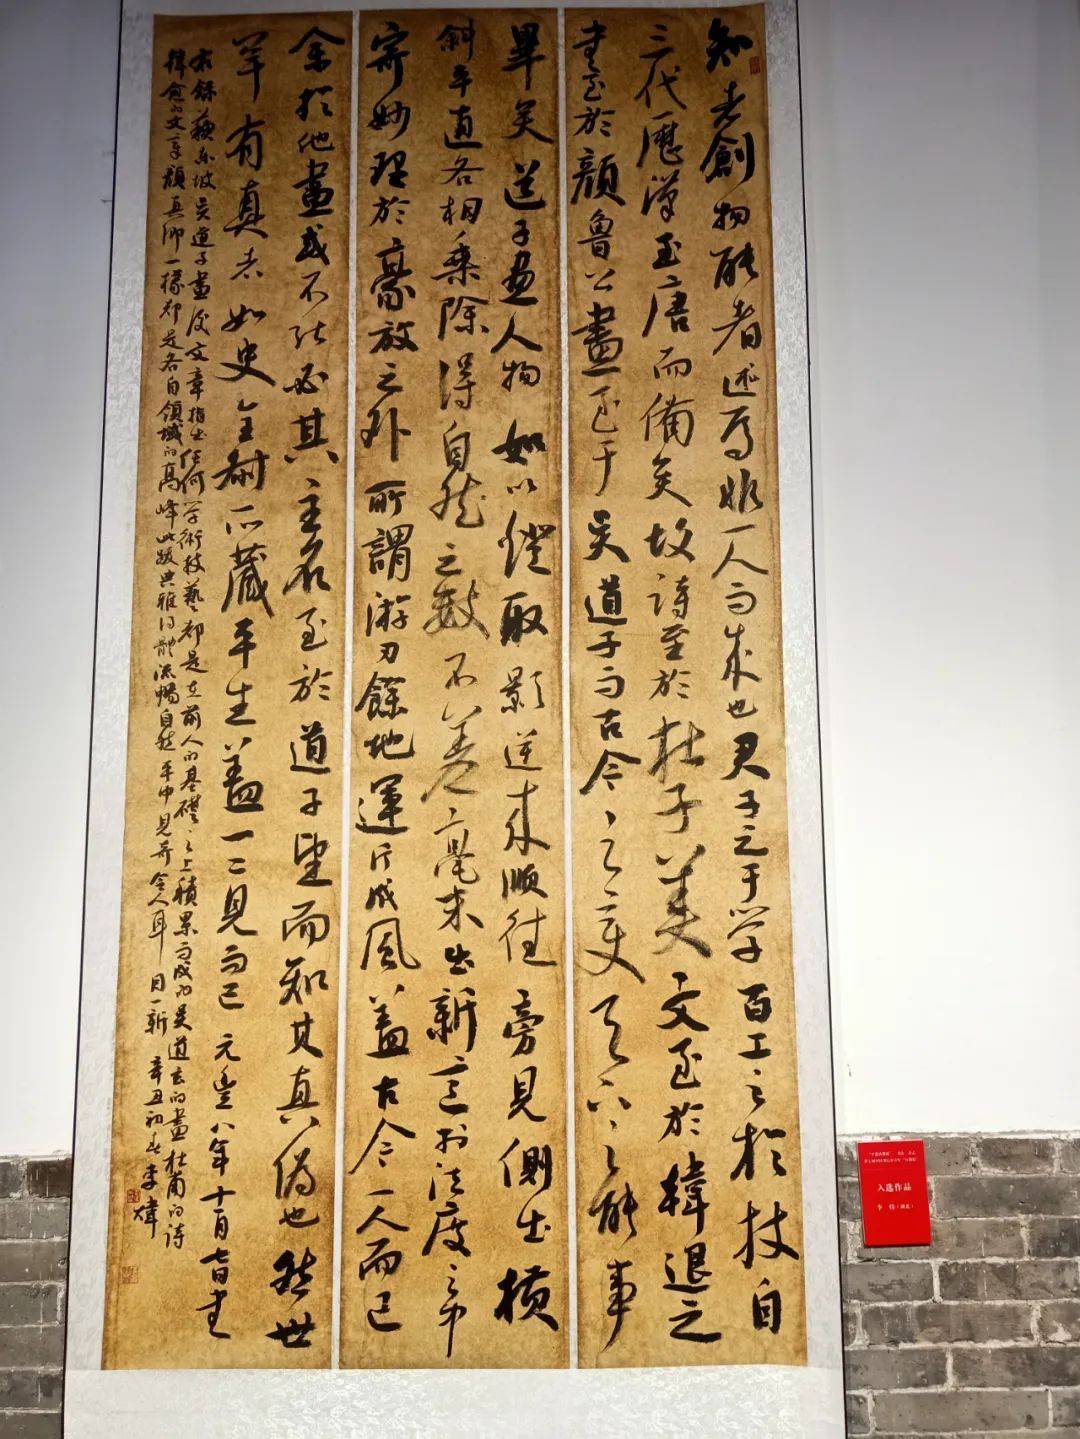 知者創物能者述焉非一人而成也君子之于学百工之於技自
三代歷漢至唐而備矣故詩至於杜子美文至於韓退之
書至於顏魯公畫至于吴道子而古今之變天下之能事
畢矣道子畫人物如以鐙取影逆来順往旁見側出橫
斜平直各相乗除得自然之數不差毫末出新意於法度之中
寄妙理於豪放之外所謂游刃餘地運斤成風蓋古今一人而已
余於他畫或不能必其主名至於道子望而知其真偽也然世
罕有真者如史全叔所藏平生蓋一二見而已元豐八年十一月七日書
右録蘇東坡吴道子畫後文章指出任何学術技藝都是在前人的基礎之上積累而成的吴道玄的畫杜甫的詩
韓愈的文章顏真卿一樣都是各自領域的高峰此跋典雅得體流暢自然平中見奇令人耳目一新 辛丑初冬李煒
入选作品
李 炜（湖北）